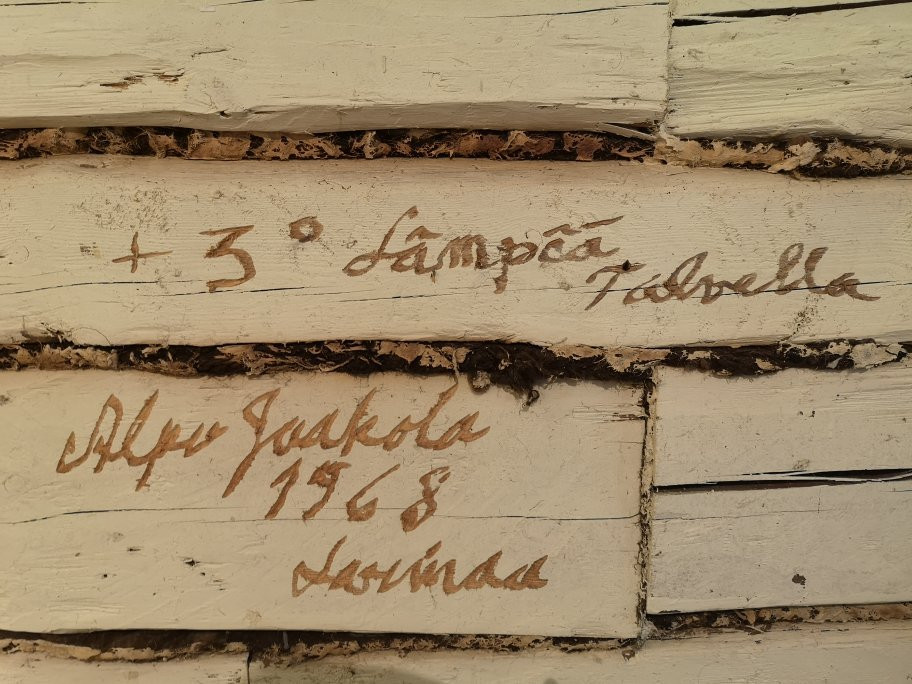 + 3° Lämpöä
Talvella
Alpo Jaakola
1968
Loimaa